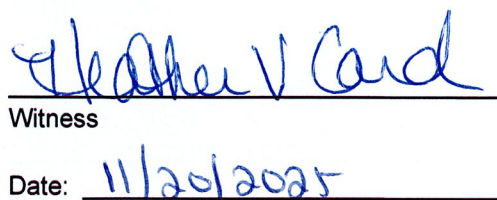 Heather V Card
Witness
Date: 11/20/2025